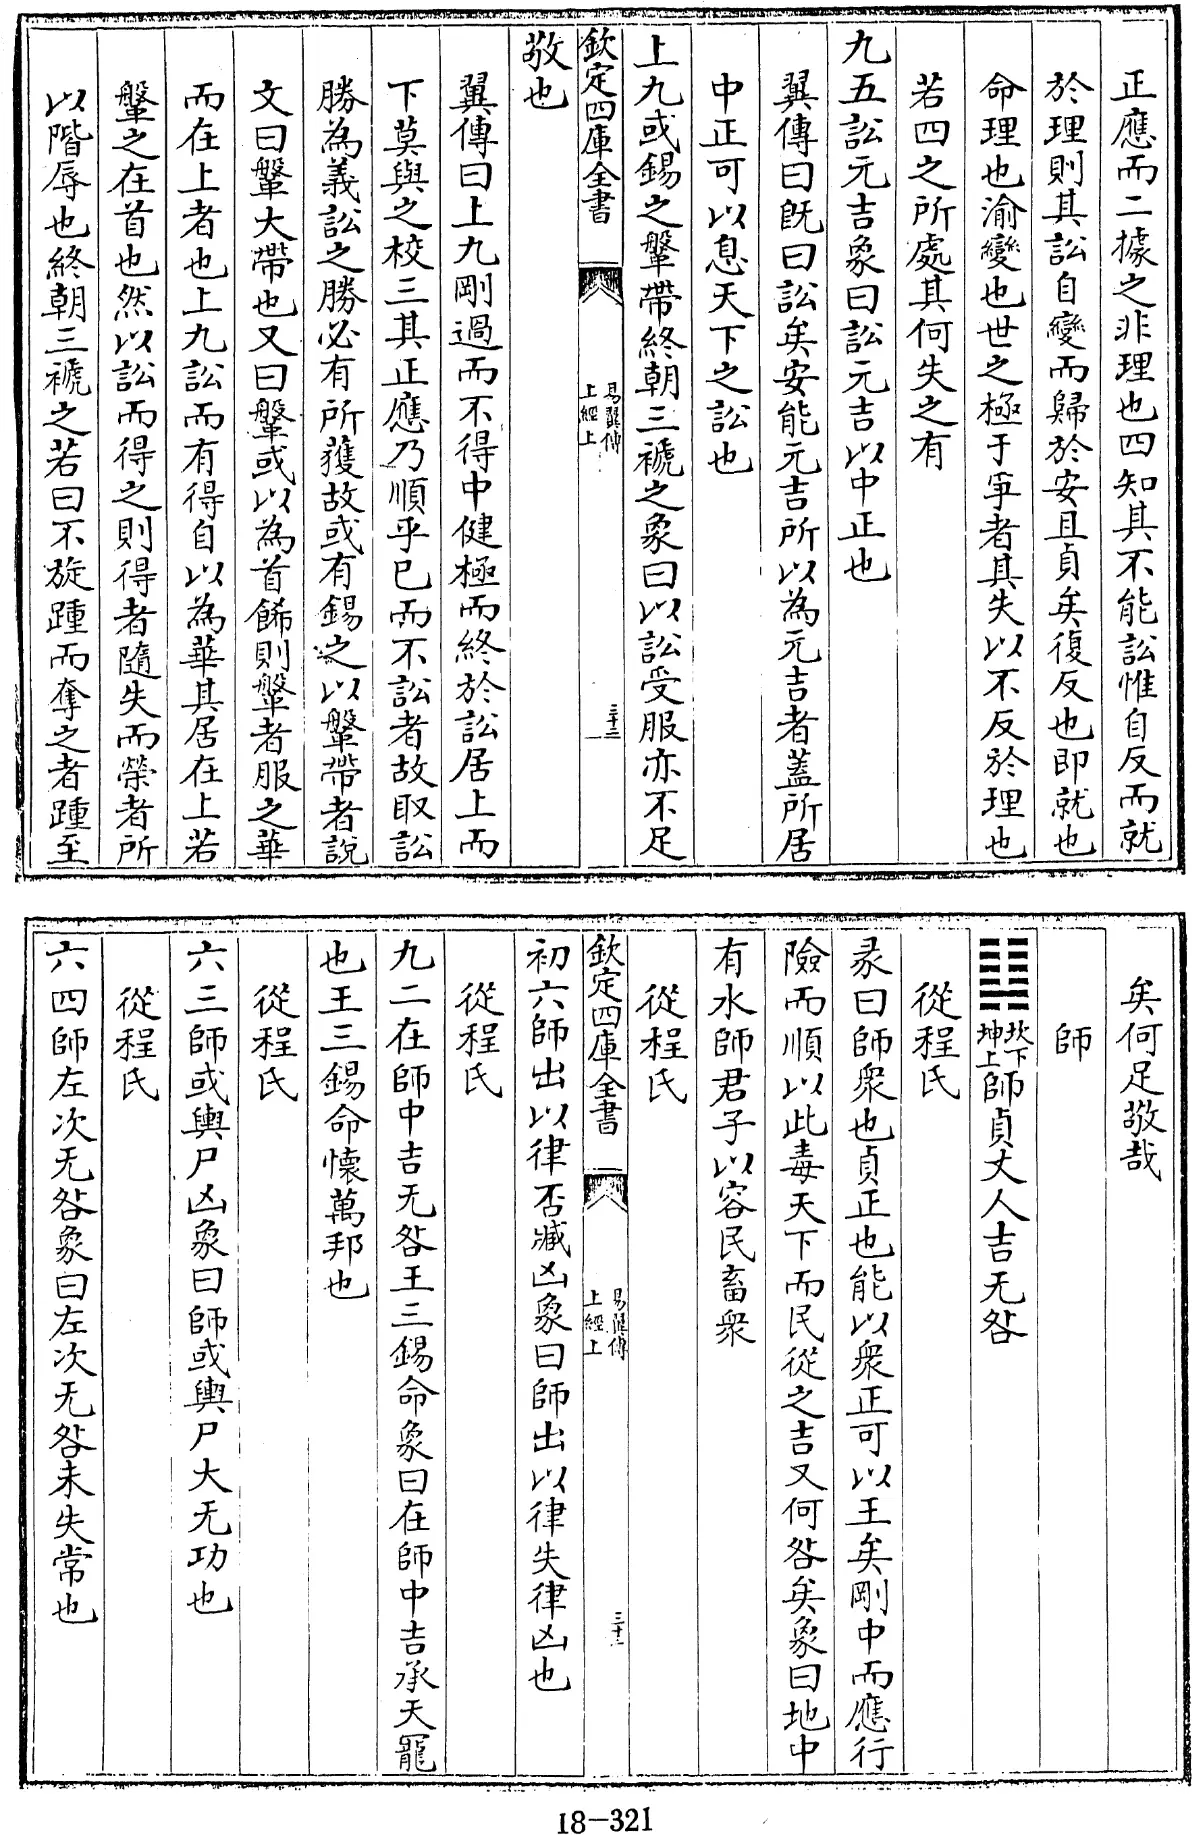 正應而二據之非理也四知其不能訟惟自反而就
於理則其訟自變而歸於安且貞矣復反也即就也
命理也渝變也世之極于爭者其失以不反於理也
若四之所處其何失之有
九五訟元吉象曰訟元吉以中正也
翼傳曰既曰訟矣安能元吉所以為元吉者蓋所居
中正可以息天下之訟也
上九或錫之鞶帶終朝三褫之象曰以訟受服亦不足
欽定四庫全書
易翼傳
上經上
三十二
敬也
翼傳曰上九剛過而不得中健極而終於訟居上而
下莫與之校三其正應乃順乎已而不訟者故取訟
勝為義訟之勝必有所獲故或有錫之以鞶帶者說
文曰鞶大帶也又曰鞶或以為首餙則鞶者服之華
而在上者也上九訟而有得自以為華其居在上若
鞶之在首也然以訟而得之則得者隨失而榮者所
以階辱也終朝三褫之若曰不旋踵而奪之者踵至
矣何足敬哉
師
䷆坎下
坤上師貞丈人吉无咎
從程氏
彖曰師衆也貞正也能以衆正可以王矣剛中而應行
險而順以此毒天下而民從之吉又何咎矣象曰地中
有水師君子以容民畜衆
從程氏
欽定四庫全書
易翼傳
上經上
初六師出以律否臧凶象曰師出以律失律凶也
從程氏
九二在師中吉无咎王三錫命象曰在師中吉承天寵
也王三錫命懷萬邦也
從程氏
六三師或輿尸凶象曰師或輿尸大无功也
從程氏
六四師左次无咎象曰左次无咎未失常也
18-321